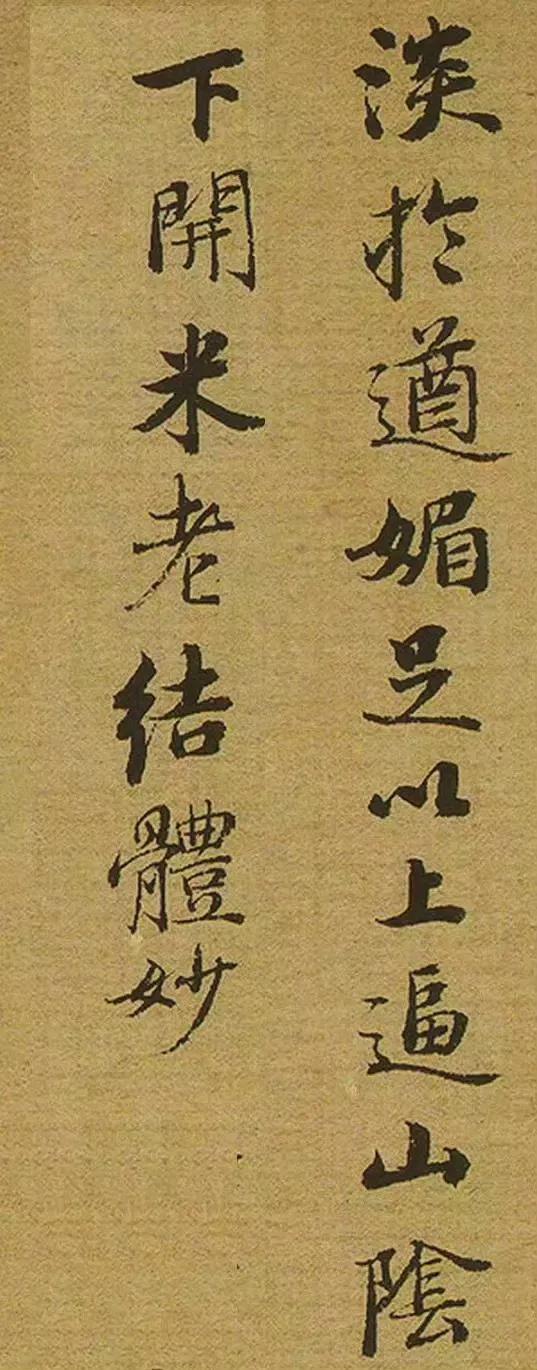 淡於遒媚足以上逼山陰
下開米老結體妙